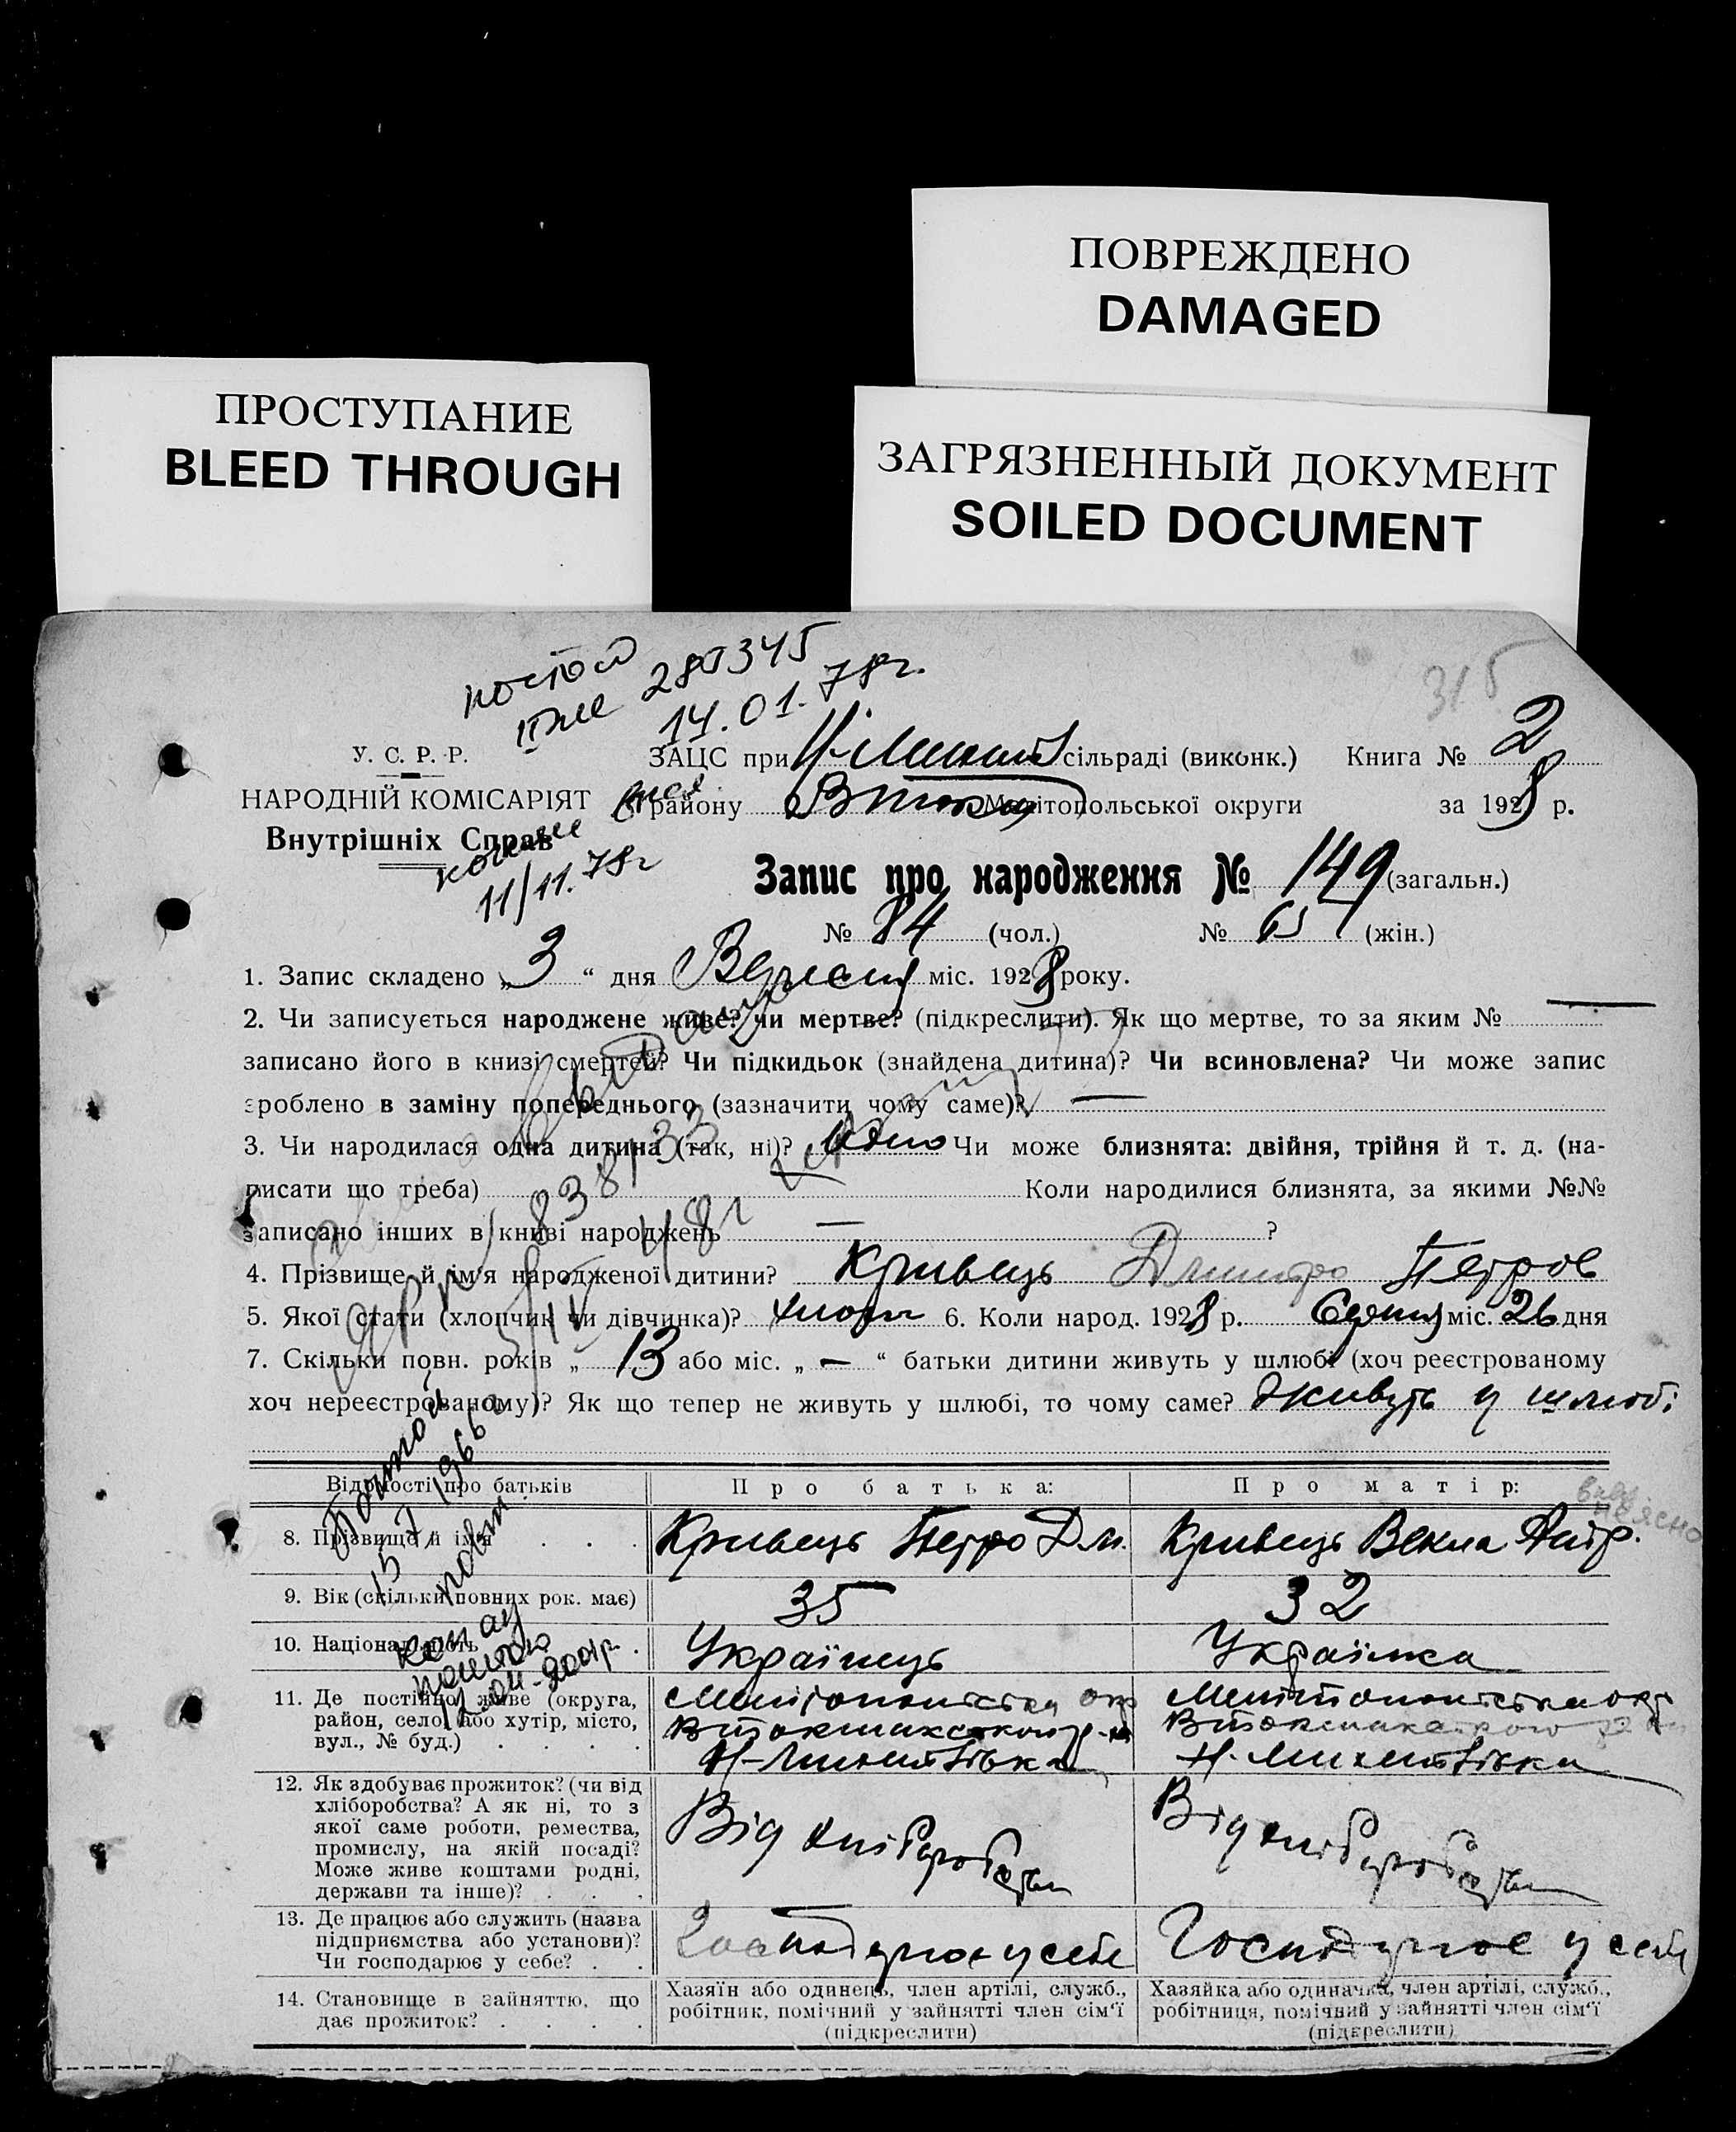 ПОВРЕЖДЕНО
DAMAGED
ПРОСТУПАНИЕ
BLEED THROUGH
ЗАГРЯЗНЕННЫЙ ДОКУМЕНТ
SOILED DOCUMENT
315
14.01.78г.
У. С. Р. Р.
ЗАЦС при сільраді (виконк.) Книга № 2
НАРОДНІЙ КОМІСАРІЯТ
району Мелітопольської округи за 1928 р.
Внутрішніх Справ
11/11.78г
Запис про народження № 149 (загальн.)
№ 84 (чол.) № 65 (жін.)
1. Запис складено „3“ дня Вересня міс. 1928 року.
2. Чи записується народжене живе? чи мертве? (підкреслити). Як що мертве, то за яким № —
записано його в книзі смертей? Чи підкидьок (знайдена дитина)? Чи всиновлена? Чи може запис
зроблено в заміну попереднього (зазначити чому саме)? —
3. Чи народилася одна дитина (так, ні)? Одно Чи може близнята: двійня, трійня й т. д. (на-
писати що треба) Коли народилися близнята, за якими №№
записано інших в книзі народжень — ?
4. Прізвище й ім'я народженої дитини? Кривець Дмитро Петров
5. Якої статі (хлопчик чи дівчинка)? хлопч 6. Коли народ. 1928 р. Серпня міс. 26 дня
7. Скільки повн. років „13 або міс. „ — “ батьки дитини живуть у шлюбі (хоч реєстрованому
хоч нереєстрованому)? Як що тепер не живуть у шлюбі, то чому саме? Живуть у шлюбі
Відомості про батьків Про батька: Про матір:
неясно
8. Прізвище й ім'я Кривець Петро Дм. Кривець Векла Дмтр.
9. Вік (скільки повних рок. має) 35 32
10. Національність Українець Українка
11. Де постійно живе (округа, район, село, або хутір, місто, вул., № буд.)
Мелітопольська окр
Н-Михайлівка
Мелітопольська окр
Н. Михайлівка
12. Як здобуває прожиток? (чи від
хліборобства? А як ні, то з
якої саме роботи, ремества,
промислу, на якій посаді?
Може живе коштами родні,
держави та інше)?
Від хліборобства
Від хліборобства
13. Де працює або служить (назва
підприємства або установи)?
Чи господарює у себе?
Господарює у себе
Господарює у себе
14. Становище в зайняттю, що
дає прожиток?
Хазяїн або одинець, член артілі, служб.,
робітник, помічний у зайнятті член сім'ї
(підкреслити)
Хазяйка або одиначка, член артілі, служб.,
робітниця, помічний у зайнятті член сім'ї
(підкреслити)